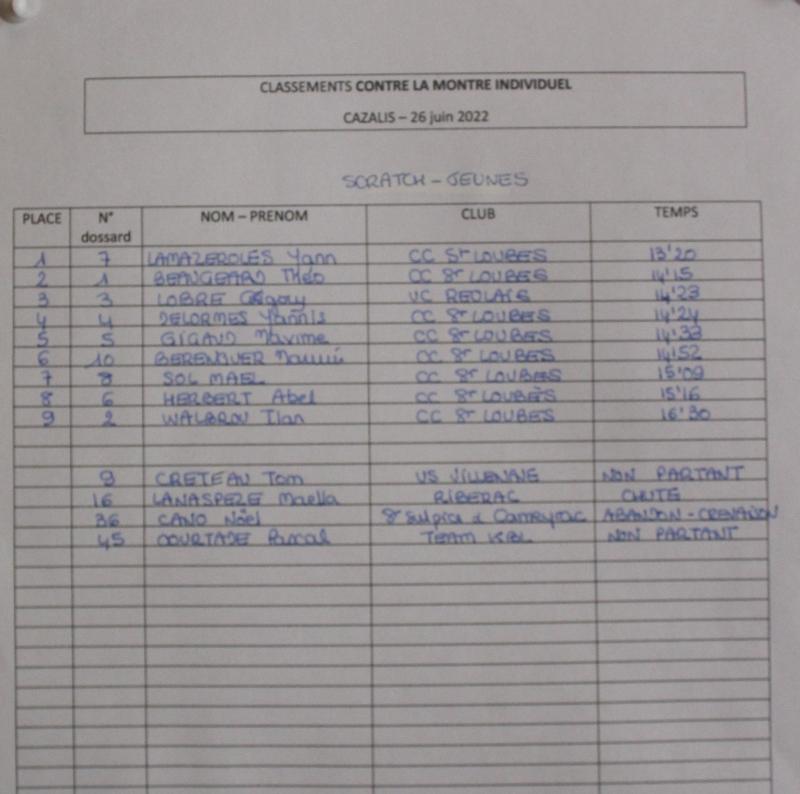 CLASSEMENTS CONTRE LA MONTRE INDIVIDUEL
CAZALIS – 26 juin 2022
SCRATCH - JEUNES
PLACE N° dossard NOM – PRENOM CLUB TEMPS
1 7 LAMAZEROLES Yann CC St LOUBES 13'20
2 1 BEAUGEARD Théo CC St LOUBES 14'15
3 3 LOBRE Grégory UC REOLAIS 14'23
4 4 DELORMES Yannis CC St LOUBES 14'24
5 5 GIGAUD Maxime CC St LOUBES 14'33
6 10 BERENGUER CC St LOUBES 14'52
7 8 SOL MAEL CC St LOUBES 15'09
8 6 HERBERT Abel CC St LOUBÈS 15'16
9 2 WALBROU Ilan CC St LOUBES 16'30
9 CRETEAU Tom US VILLENAVE NON PARTANT
16 LANASPEZE Maella RIBERAC CHUTE
36 CANO Nöel St Sulpice & Cameyrac ABANDON - CREVAISON
45 COURTADE Pascal TEAM NON PARTANT